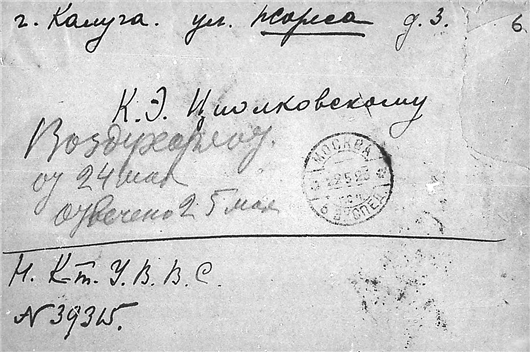 г. Калуга. ул. Жореса д. 3. 6
К. Э. Циолковскому
Воздухоплав.
от 24 мая
отвечено 25 мая
МОСКВА
22.5.2
ЭКСПЕД.
Н. К-т. У. В. В. С.
N 39315.